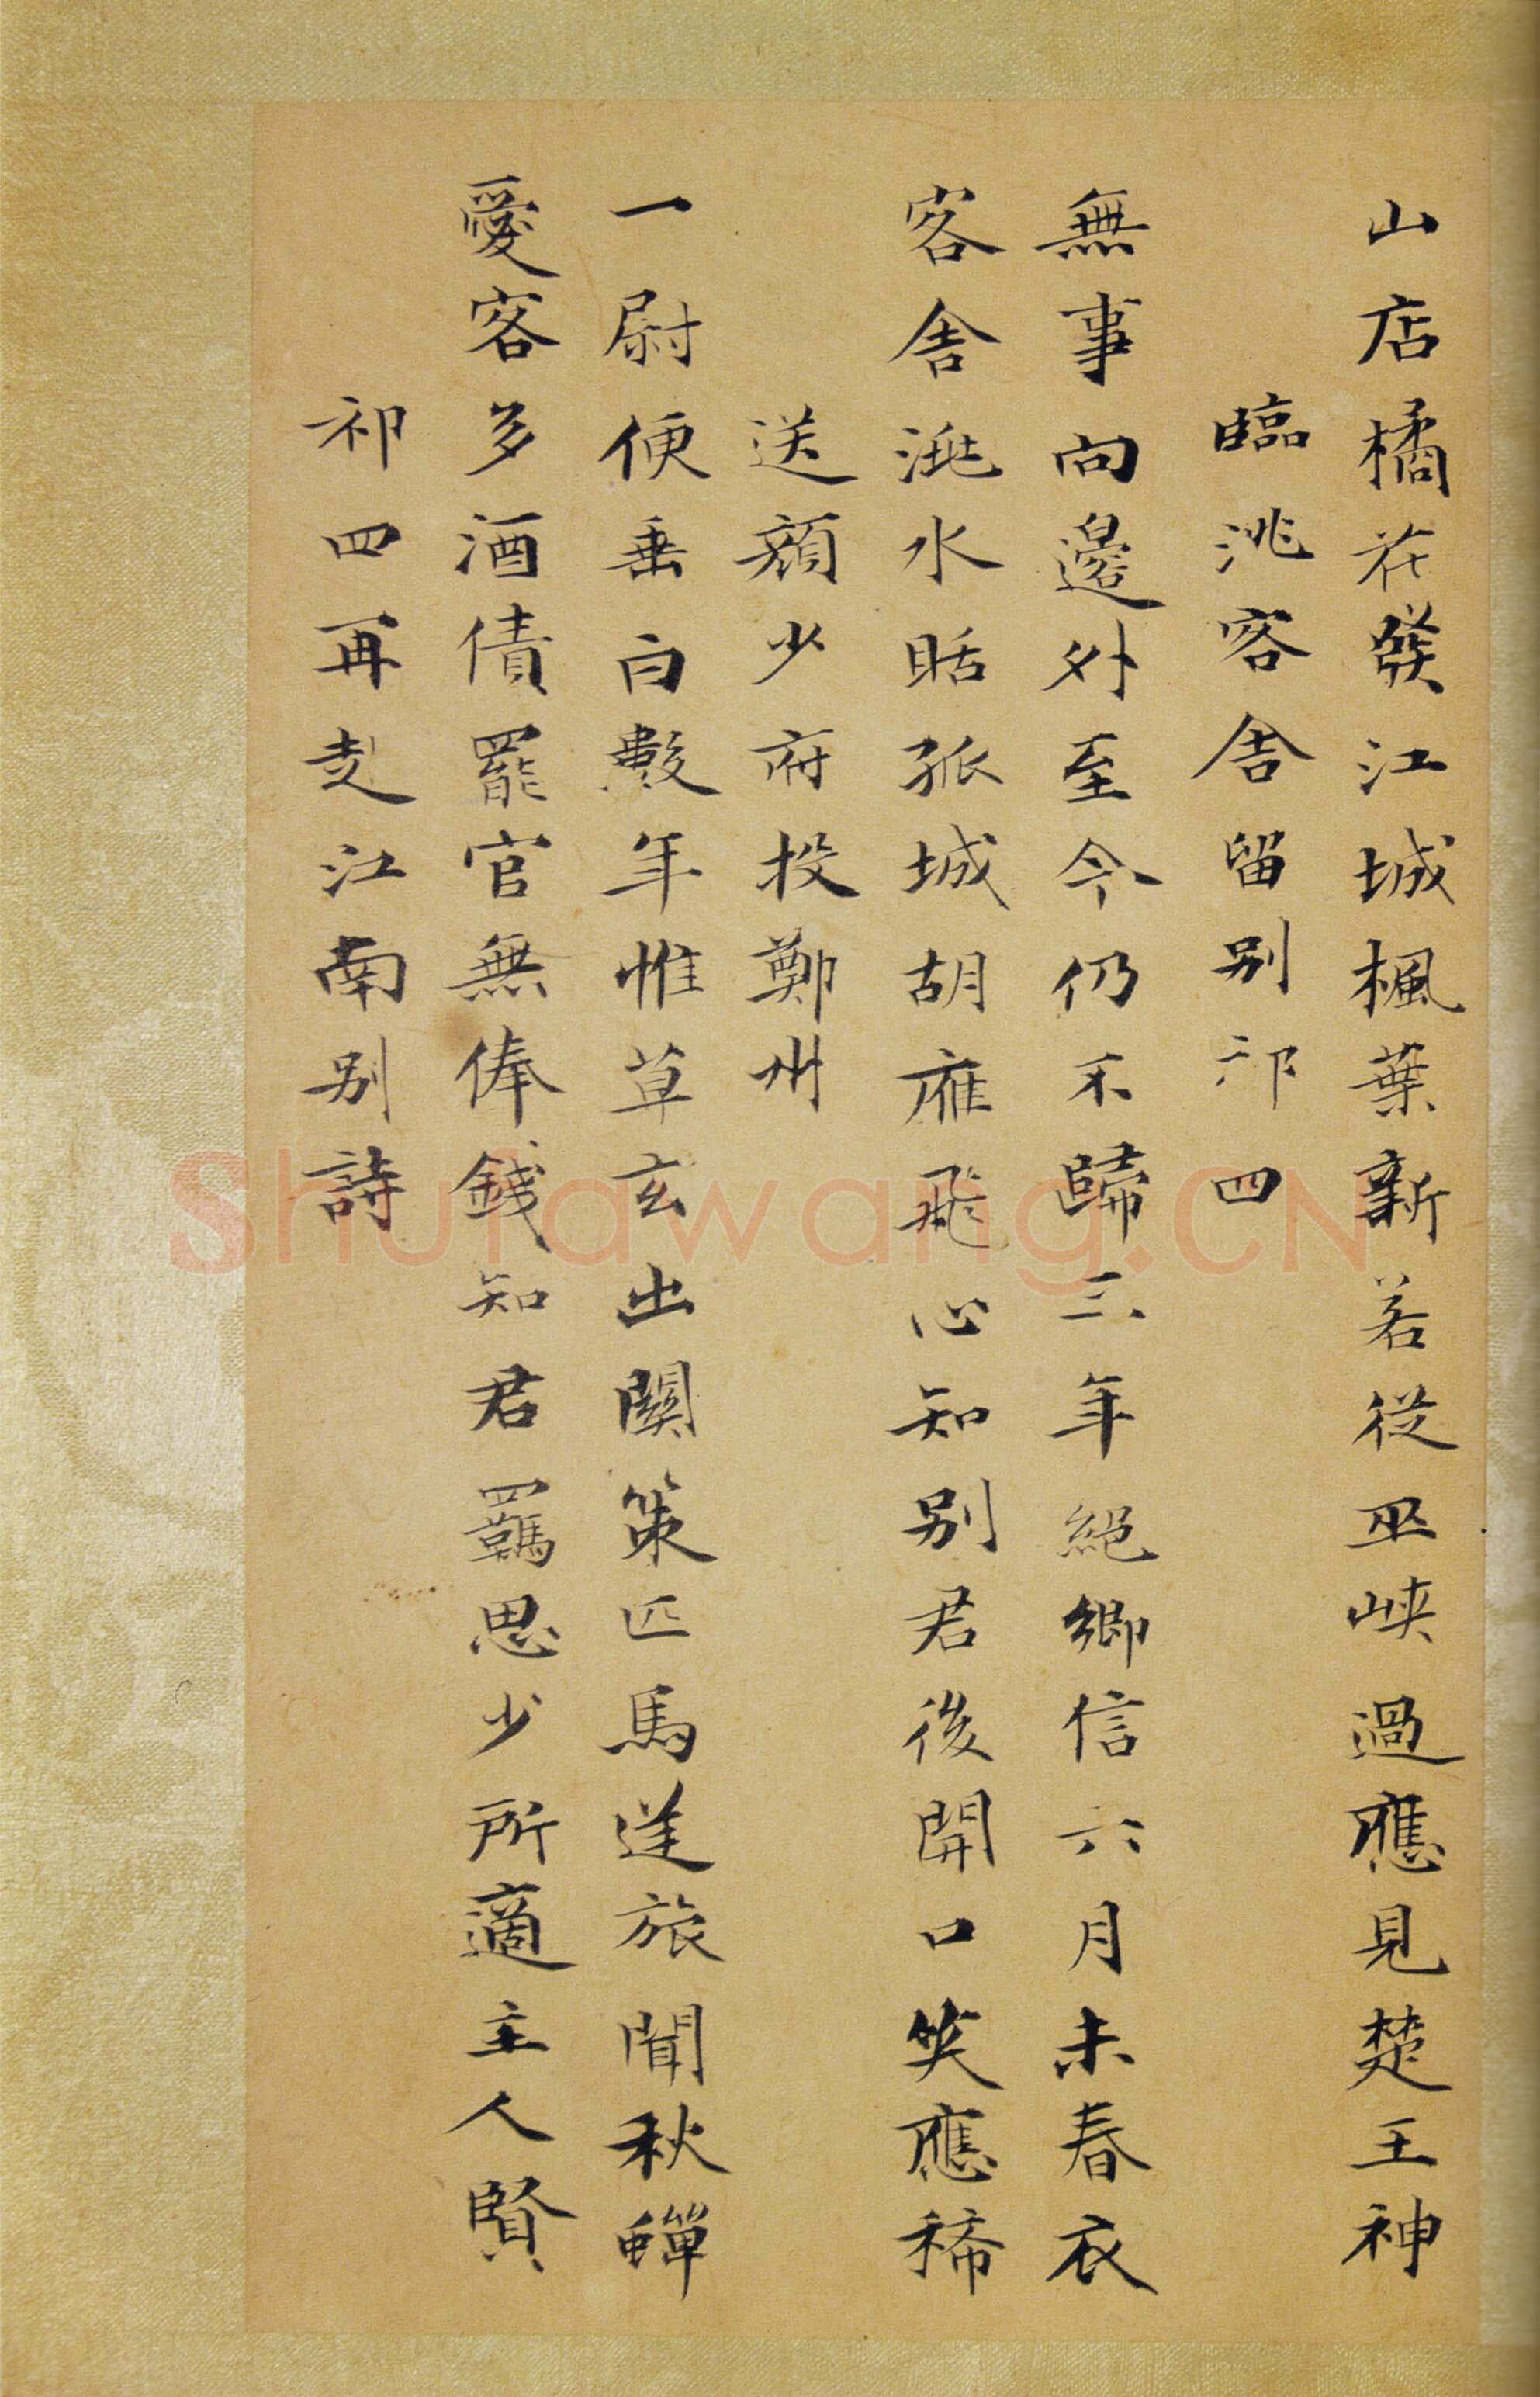 山店橘花發江城楓葉新若從巫峽過應見楚王神
臨洮客舍留別祁四
無事向邊外至今仍不歸三年絕鄉信六月未春衣
客舍洮水聒孤城胡雁飛心知別君後開口笑應稀
送顏少府投鄭州
一尉便垂白數年惟草玄出關策匹馬逆旅聞秋蟬
愛客多酒債罷官無俸錢知君羈思少所適主人賢
祁四再赴江南別詩
Shufawang.CN